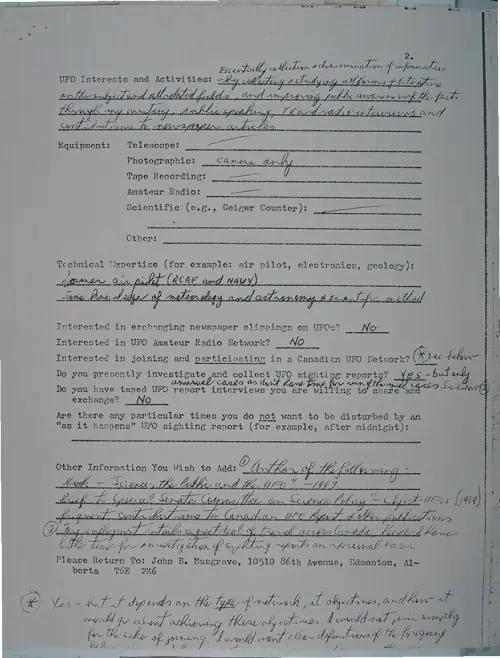 2.
Essentially collection & dissemination of information
UFO Interests and Activities: - By collecting & studying all forms of literature
on the subject and all related fields, and improving public awareness of the facts
through my writing, public speaking, TV and radio interviews and
contributions to newspaper articles
Equipment: Telescope:
Photographic: camera only
Tape Recording:
Amateur Radio:
Scientific (e.g., Geiger Counter):
Other:
Technical Expertise (for example: air pilot, electronics, geology):
Former air pilot (RCAF and NAVY)
Some knowledge of meteorology and astronomy & scientific method
Interested in exchanging newspaper clippings on UFOs? NO
Interested in UFO Amateur Radio Network? NO
Interested in joining and participating in a Canadian UFO Network? (* see below
Do you presently investigate and collect UFO sighting reports? YES - but only
unusual cases as don't have time for run of the mill cases. See below (2)
Do you have taped UFO report interviews you are willing to share and
exchange? NO
Are there any particular times you do not want to be disturbed by an
"as it happens" UFO sighting report (for example, after midnight):
Other Information You Wish to Add: (1) Author of the following:
book - "Science, the Public and the UFO" - 1967
brief to Special Senate Committee on Science Policy - subject UFOs (1969)
frequent contributions to Canadian UFO Report & other publications
(2) My employment entails a great deal of travel across Canada, hence I have
little time for investigation of sighting reports on a personal basis.
Please Return To: John B. Musgrave, 10510 86th Avenue, Edmonton, Al-
berta T6E 2M6
(*) Yes - but it depends on the type of network, it objectives, and how it
would go about achieving these objectives. I would not join simply
for the sake of joining. I would want clear definitions of the foregoing